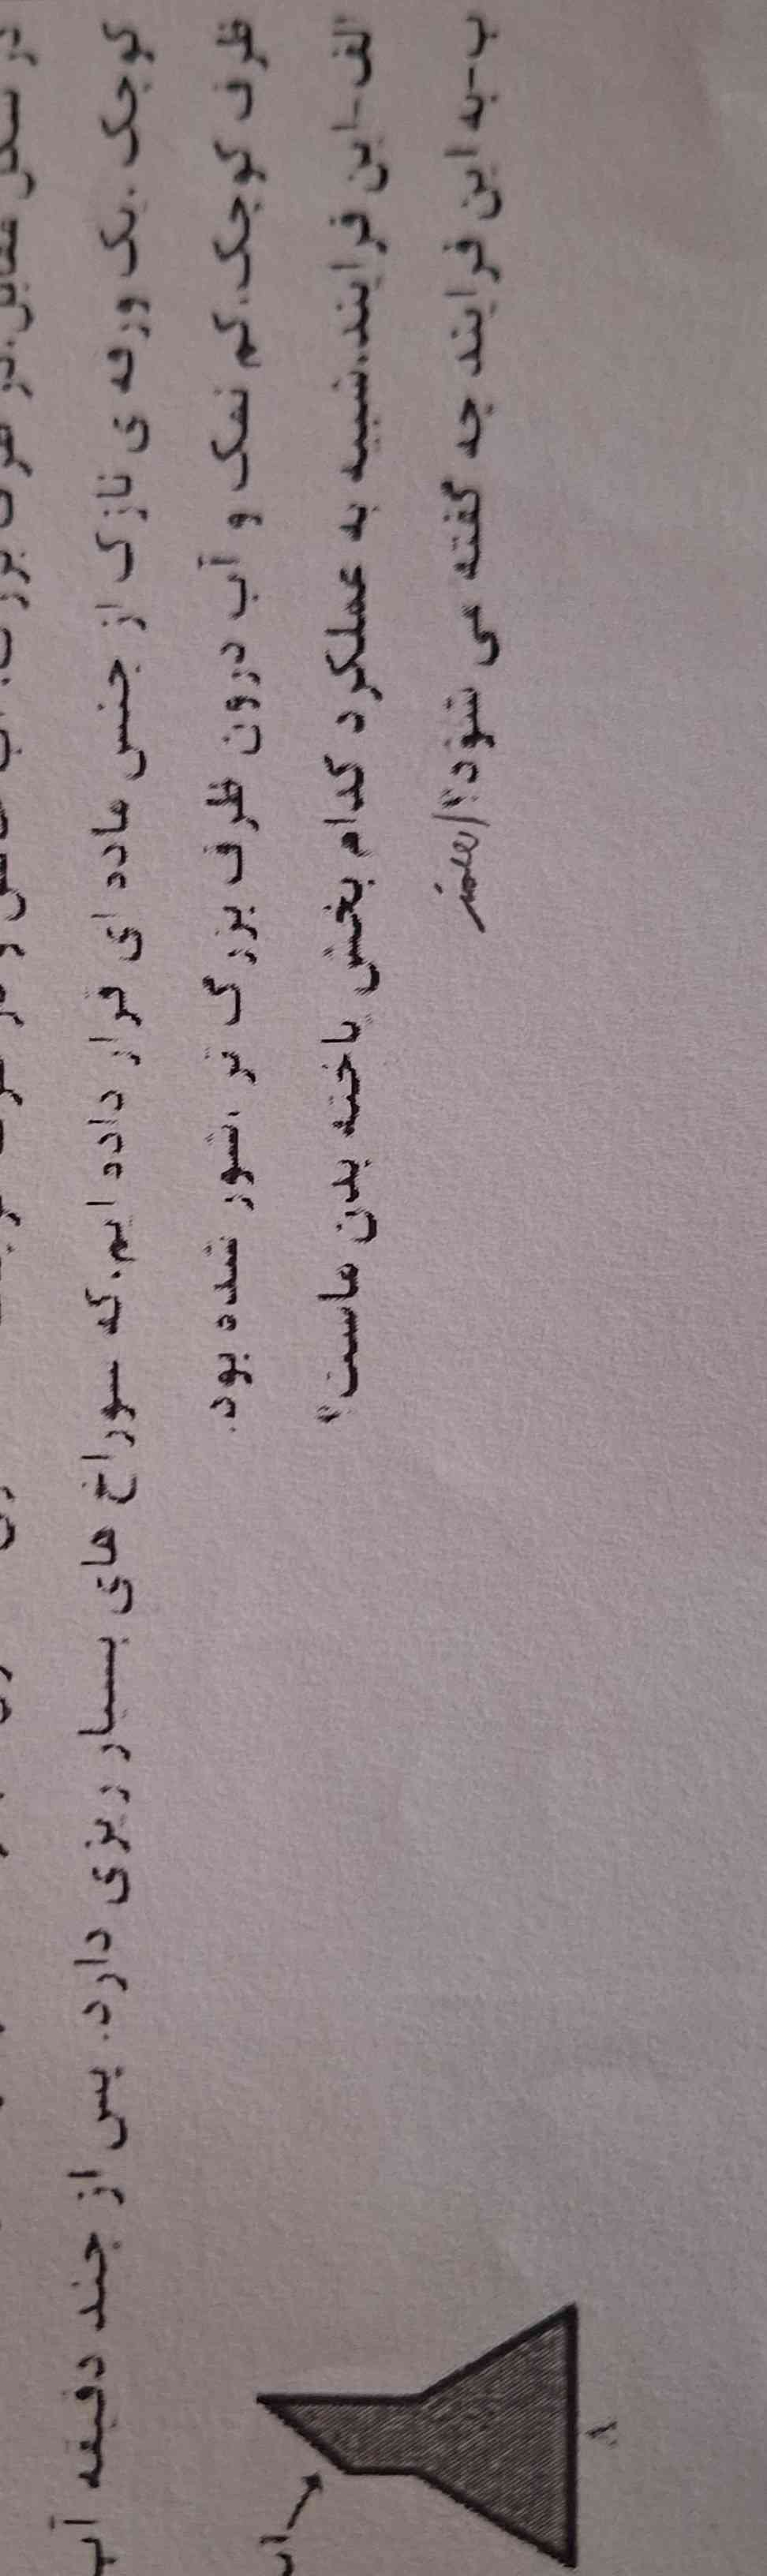 در شکل مقابل،در ظرف بزرگ
کوچک .یک ورقه ی نازک از جنس ماده ای قرار داده ایم، که سوراخ های بسیار ریزی دارد. پس از چند دقیقه آب
ظرف کوچک،کم نمک و آب درون ظرف بزرگ تر ،شور شده بود.
الف-این فرایند،شبیه به عملکرد کدام بخش یاخته بدن ماست؟
ب-به این فرایند چه گفته می شود؟ اسمز